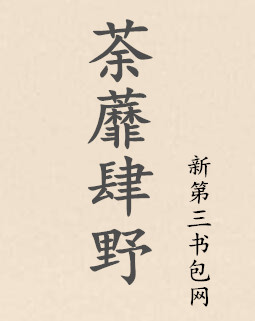 荼蘼肆野
新第三书包网